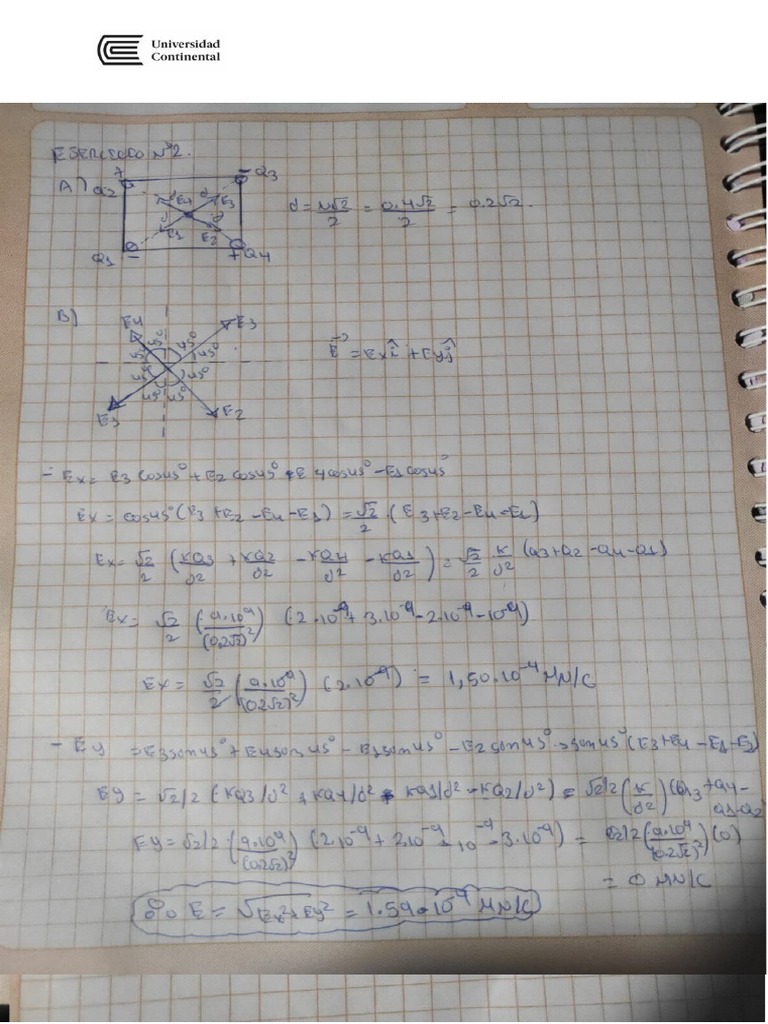 Universidad
Continental
EJERCICIO N°2.
A)
Q2 + - Q3
E4 d d E3
d E1 E2 d
Q1 - + Q4
d = L√2/2 = 0.4√2/2 = 0.2√2.
B)
E4 E3
45° 45°
45° 45°
45° 45°
45° 45°
E1 E2
E = Ex î + Ey ĵ
- Ex = E3 cos45° + E2 cos45° E4 cos45° - E1 cos45°
Ex = cos45° (E3 + E2 - E4 - E1) = √2/2 (E3 + E2 - E4 - E1)
Ex = √2/2 (KQ3/d2 + KQ2/d2 - KQ4/d2 - KQ1/d2) = √2/2 K/d2 (Q3 + Q2 - Q4 - Q1)
Ex = √2/2 (9.10⁹/(0.2√2)²) (2.10⁻⁹ + 3.10⁻⁹ - 2.10⁻⁹ - 10⁻⁹)
Ex = √2/2 (9.10⁹/(0.2√2)²) (2.10⁻⁹) = 1,50.10⁻⁴ MN/C
- Ey = E3 sen45° + E4 sen45° - E1 sen45° - E2 sen45° = sen45° (E3 + E4 - E1 - E2)
Ey = √2/2 (KQ3/d² + KQ4/d² - KQ1/d² - KQ2/d²) = √2/2 (K/d2) (Q3 + Q4 - Q1 - Q2)
Ey = √2/2 (9.10⁹/(0.2√2)²) (2.10⁻⁹ + 2.10⁻⁹ - 10⁻⁹ - 3.10⁻⁹) = √2/2 (9.10⁹/(0.2√2)²) (0)
= 0 MN/C
∴ E = √Ex² + Ey² = 1.59.10⁻⁴ MN/C